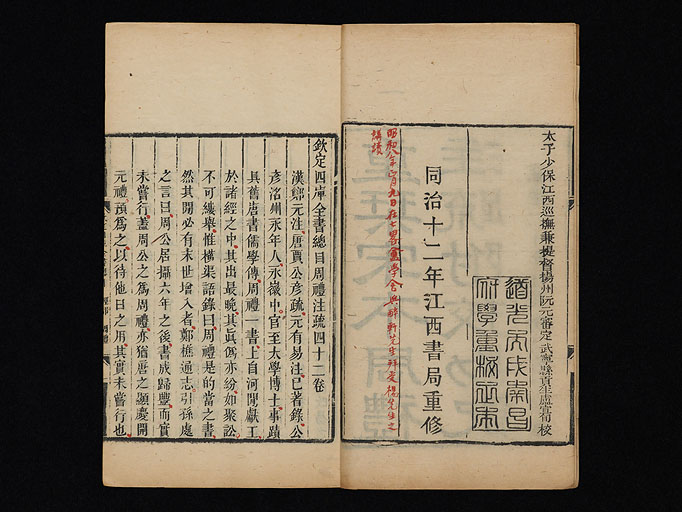 太子少保江西巡撫兼提督揚州阮元審定武寧縣貢生盧宣旬校
道光丙戌南昌
府學重校正本
同治十二年江西書局重修
昭和八年
講讀
欽定四庫全書總目周禮注疏四十二卷
漢鄭元注唐賈公彥疏元有易注已著錄公
彥洺州永年人永徽中官至太學博士事蹟
具舊唐書儒學傳周禮一書上自河間獻王
於諸經之中其出最晚其眞僞亦紛如聚訟
不可縷舉惟橫渠語錄曰周禮是的當之書
然其間必有末世增入者鄭樵通志引孫處
之言曰周公居攝六年之後書成歸豐而實
未嘗行蓋周公之爲周禮亦猶唐之顯慶開
元禮預爲之以待他日之用其實未嘗行也